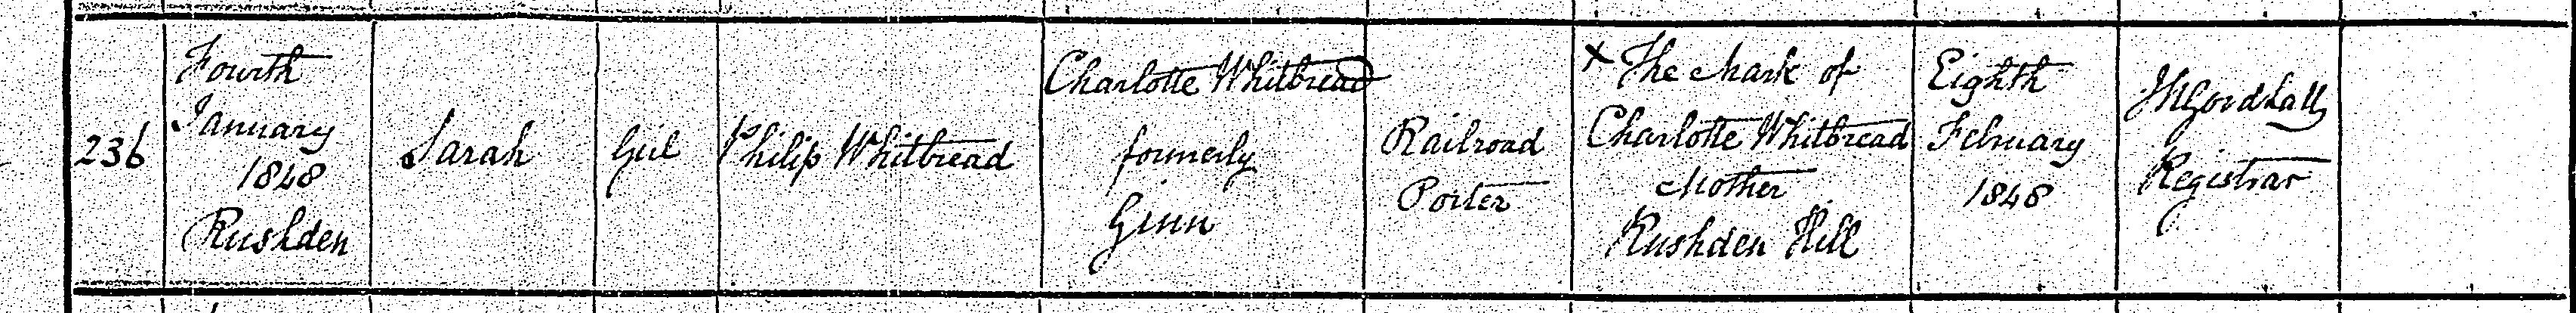 236
Fourth
January
1848
Rushden
Sarah
Girl
Philip Whitbread
Charlotte Whitbread
formerly
Ginn
Railroad
Porter
X The Mark of
Charlotte Whitbread
Mother
Rushden Hill
Eighth
February
1848
Registrar